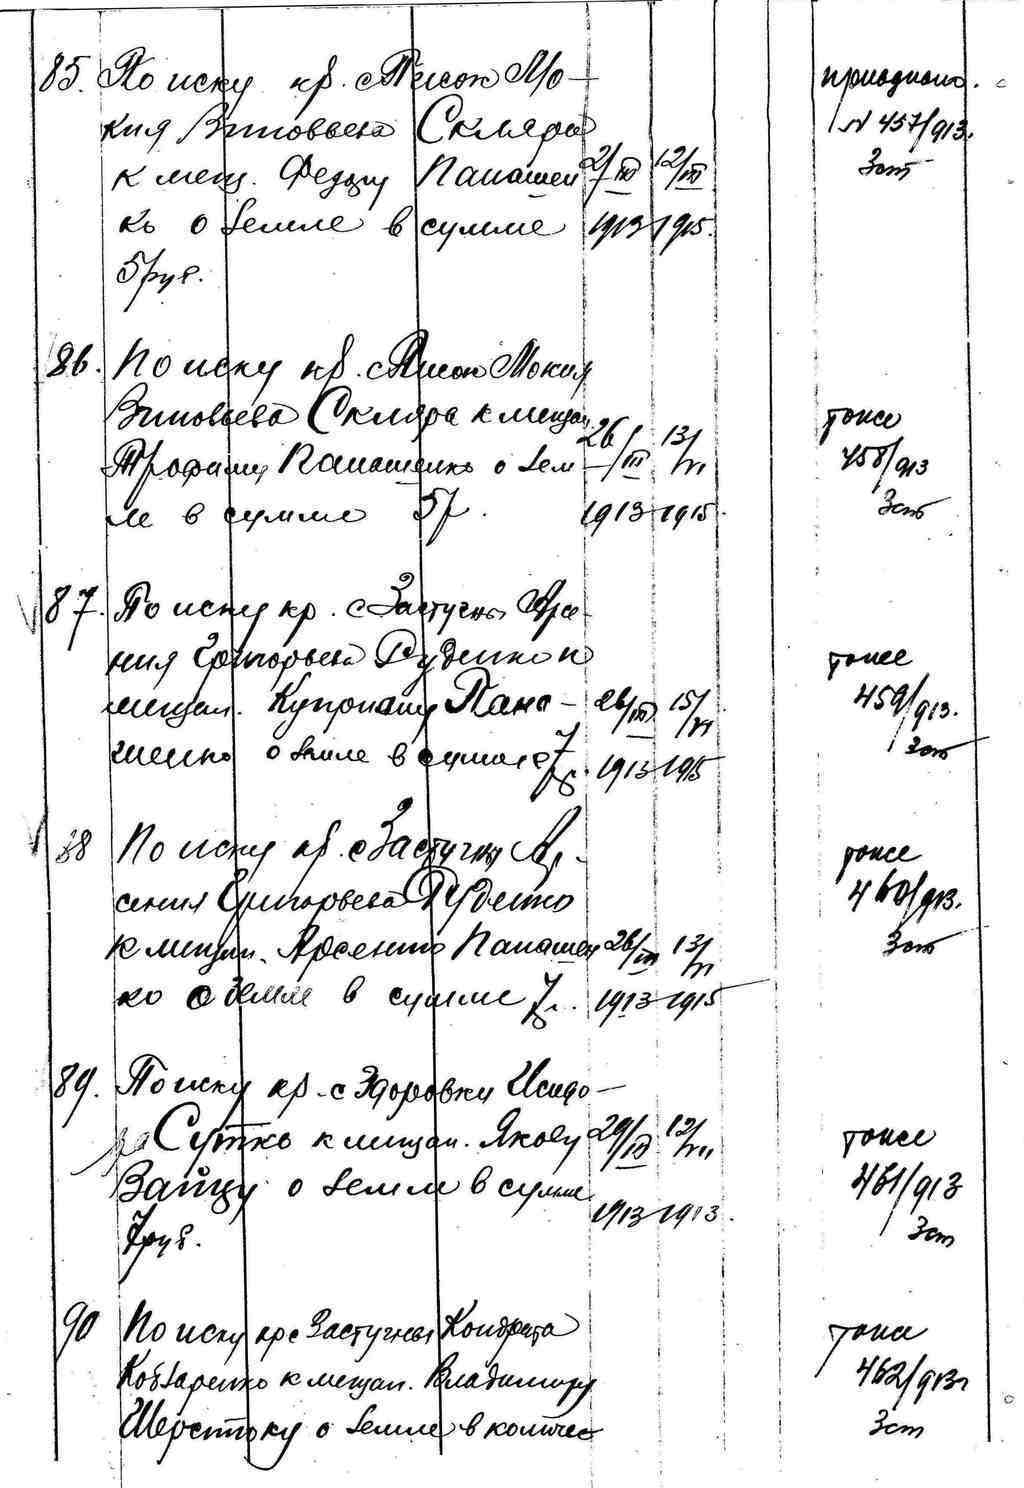 85. По иску кр. с. Писок Мо-
кия Зиновьева Скляра
к мещ. Федору Панашен 2/III 12/III
ко о земле в сумме 1913 1915.
5 руб.
приобщено.
N 457/913.
3 ст
86. По иску кр. с. Писок Мокия
Зиновьева Скляра к мещан.
Трофиму Панашенко о зем 26/III 13/VI
ле в сумме 5 р. 1913 1915
тоже
458/913
3 ст
87. По иску кр. с Застугны Арсе-
ния Григорьева Руденко к
мещан. Куприану Пана- 26/III 15/VI
шенко о земле в сумме 7 р. 1913 1915
тоже
459/913.
3 ст
88 По иску кр. с Застугны Ар-
сения Григорьева Руденко
к мещан. Арсентию Панашен 26/III 13/VI
ко о земле в сумме 7 р. 1913 1915
тоже
460/913.
3 ст
89. По иску кр. с Здоровки Исидо-
ра Сутко к мещан. Якову 29/III 12/VI
Зайцу о земле в сумме 1913 1913.
7 руб.
тоже
461/913
3 ст
90 По иску кр с Застугны Кондрата
Кобзаренко к мещан. Владимиру
Шерстюку о земле в количес
тоже
462/913
3 ст